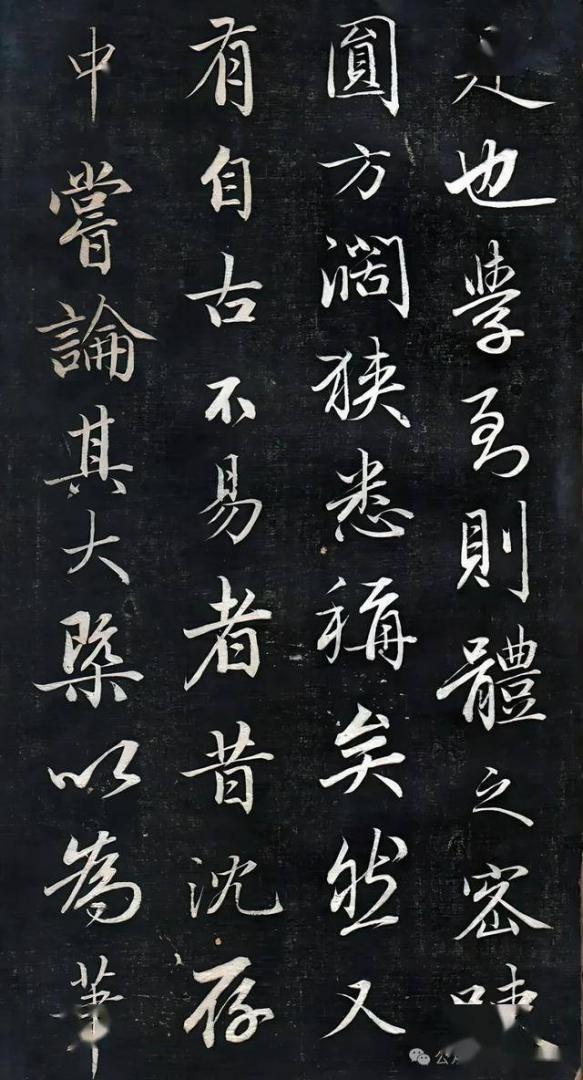 也學至則體之密
圓方濶狹悉稱矣然又
有自古不易者昔沈存
中嘗論其大槩以為